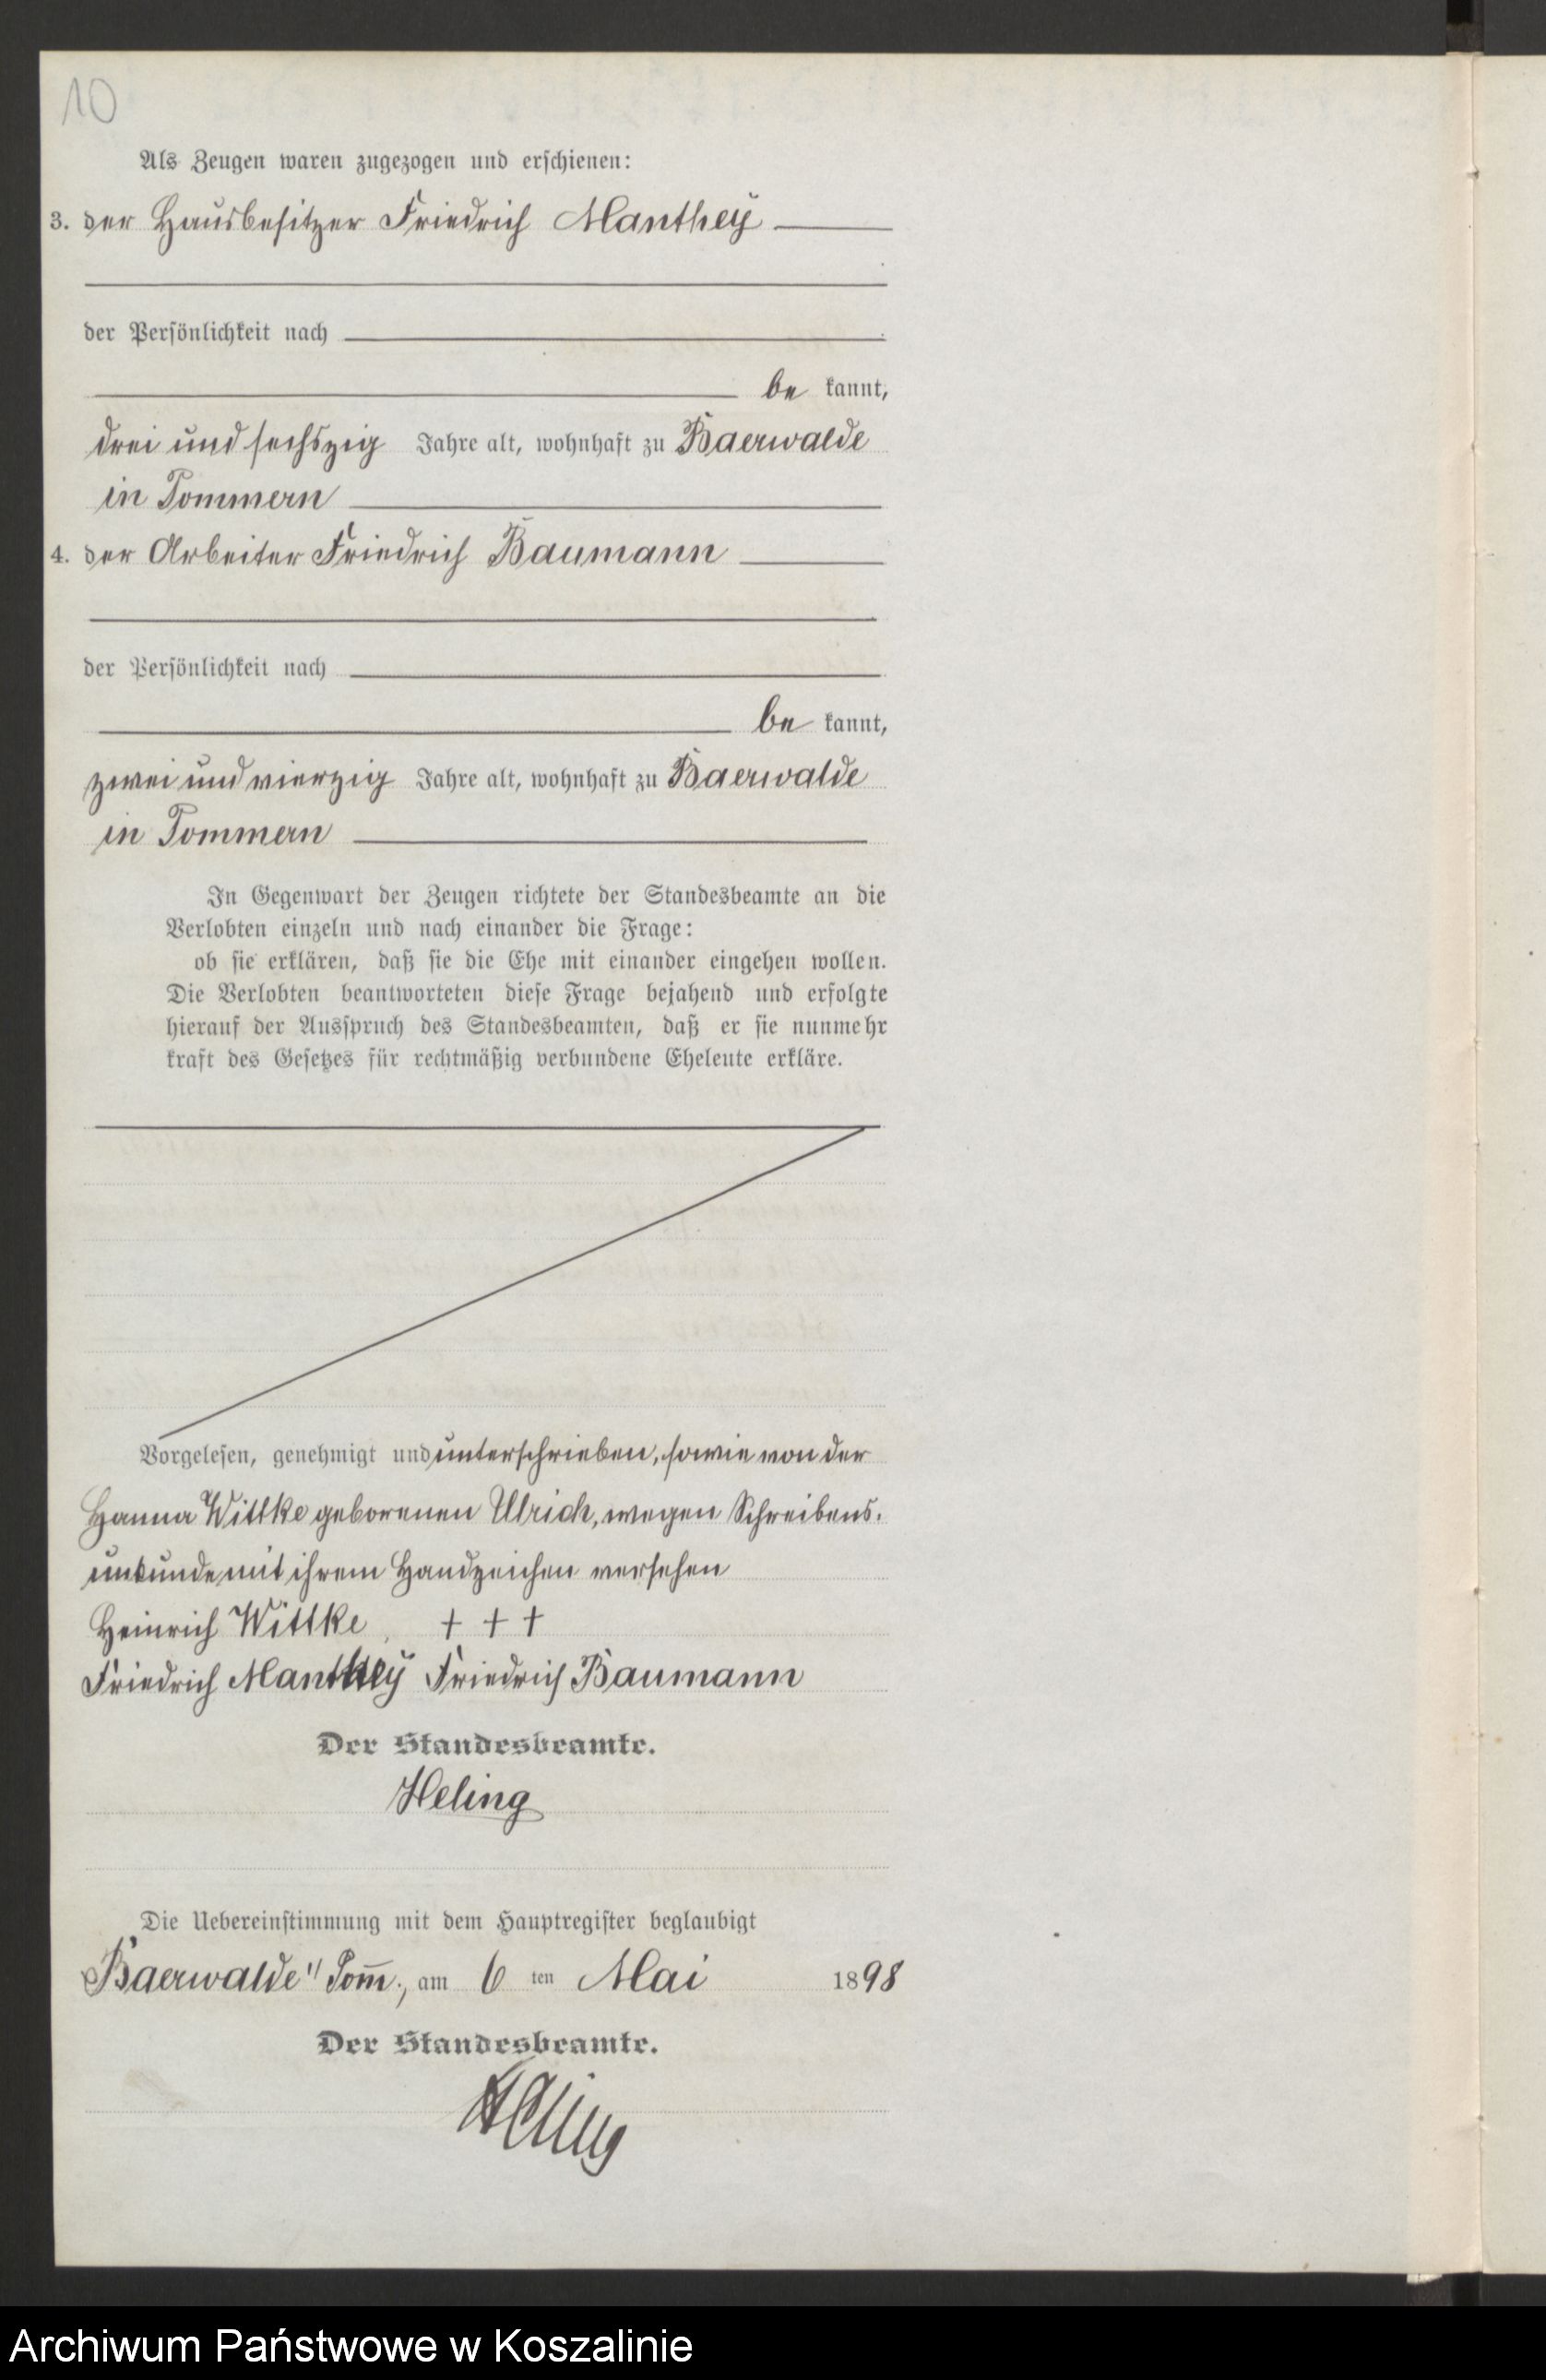 10
Als Zeugen waren zugezogen und erschienen:
3. der Hausbesitzer Friedrich Manthey
der Persönlichkeit nach
be kannt,
drei und sechszig Jahre alt, wohnhaft zu Baerwalde
in Pommern
4. der Arbeiter Friedrich Baumann
der Persönlichkeit nach
be kannt,
zwei und vierzig Jahre alt, wohnhaft zu Baerwalde
in Pommern
In Gegenwart der Zeugen richtete der Standesbeamte an die
Verlobten einzeln und nach einander die Frage:
ob sie erklären, daß sie die Ehe mit einander eingehen wollen.
Die Verlobten beantworteten diese Frage bejahend und erfolgte
hierauf der Ausspruch des Standesbeamten, daß er sie nunmehr
kraft des Gesetzes für rechtmäßig verbundene Eheleute erkläre.
Vorgelesen, genehmigt und unterschrieben, sowie von der
Hanna Wittke geborenen Ulrich, wegen Schreibens-
unkunde mit ihrem Handzeichen versehen
Heinrich Wittke, + + +
Friedrich Manthey Friedrich Baumann
Der Standesbeamte.
Heling
Die Uebereinstimmung mit dem Hauptregister beglaubigt
Baerwalde i/ Pom̅., am 6 ten Mai 1898
Der Standesbeamte.
Heling
Archiwum Państwowe w Koszalinie